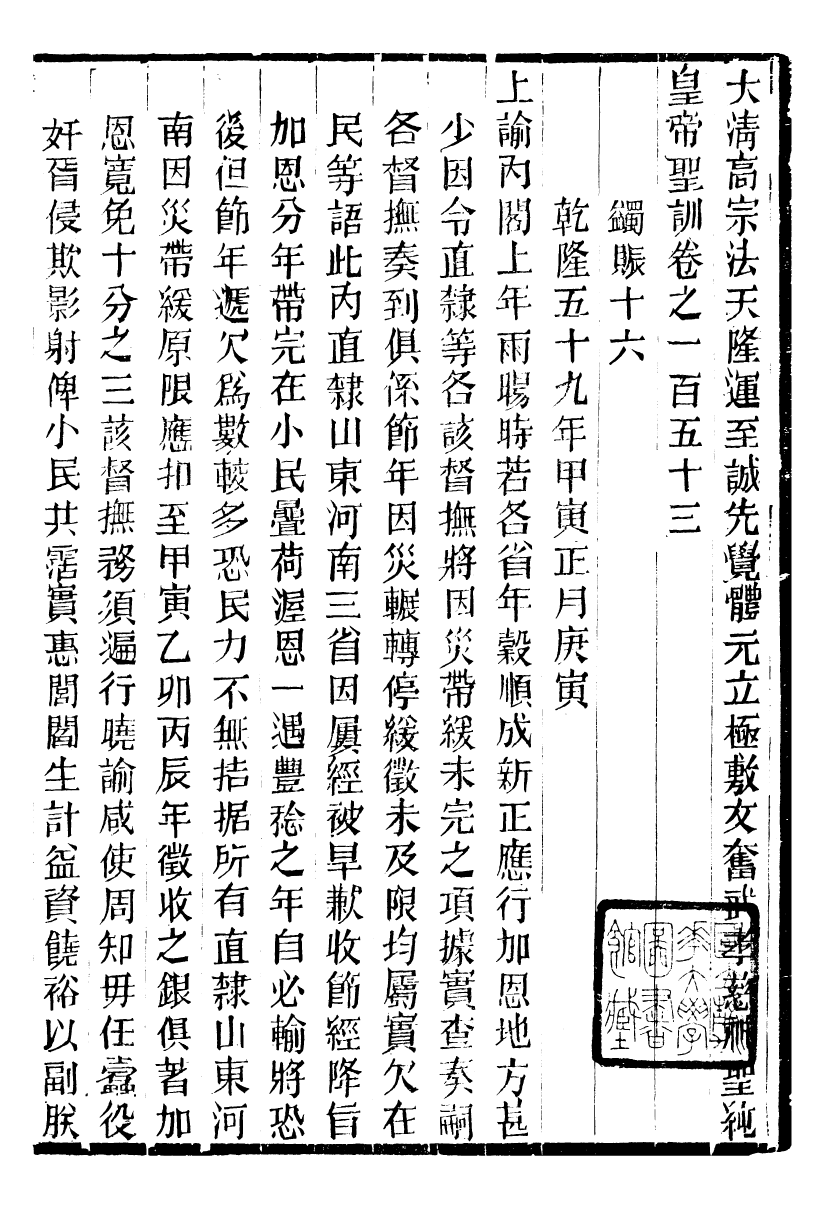 大清高宗法天隆運至誠先覺體元立極敷文奮武孝慈神聖純
皇帝聖訓卷之一百五十三
蠲賑十六
乾隆五十九年甲寅正月庚寅
上諭內閣上年雨暘時若各省年穀順成新正應行加恩地方甚
少因令直隸等各該督撫將因災帶緩未完之項據實查奏嗣
各督撫奏到俱係節年因災輾轉停緩徵未及限均屬實欠在
民等語此內直隸山東河南三省因屢經被旱歉收節經降旨
加恩分年帶完在小民疊荷渥恩一遇豐稔之年自必輸將恐
後但節年遞欠爲數較多恐民力不無拮据所有直隸山東河
南因災帶緩原限應扣至甲寅乙卯丙辰年徵收之銀俱著加
恩寬免十分之三該督撫務須遍行曉諭咸使周知毋任蠹役
奸胥侵欺影射俾小民共霑實惠閭閻生計益資饒裕以副朕
國立清
華大學
圖書
館藏